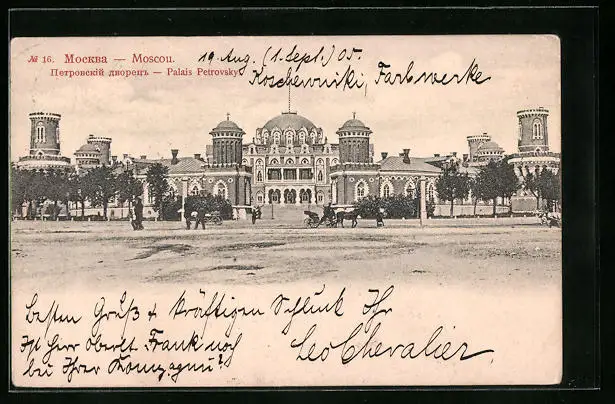 № 16. Москва — Moscou.
Петровскій дворецъ — Palais Petrovsky
19 Aug. (1 Sept.) 05.
Koschewniki, Farbwerke
besten Gruß & kräftigen Schluk Ihr
Ist Herr Oberlt. Frank noch
bei Ihrer Kompagnie?
Leo Chevalier